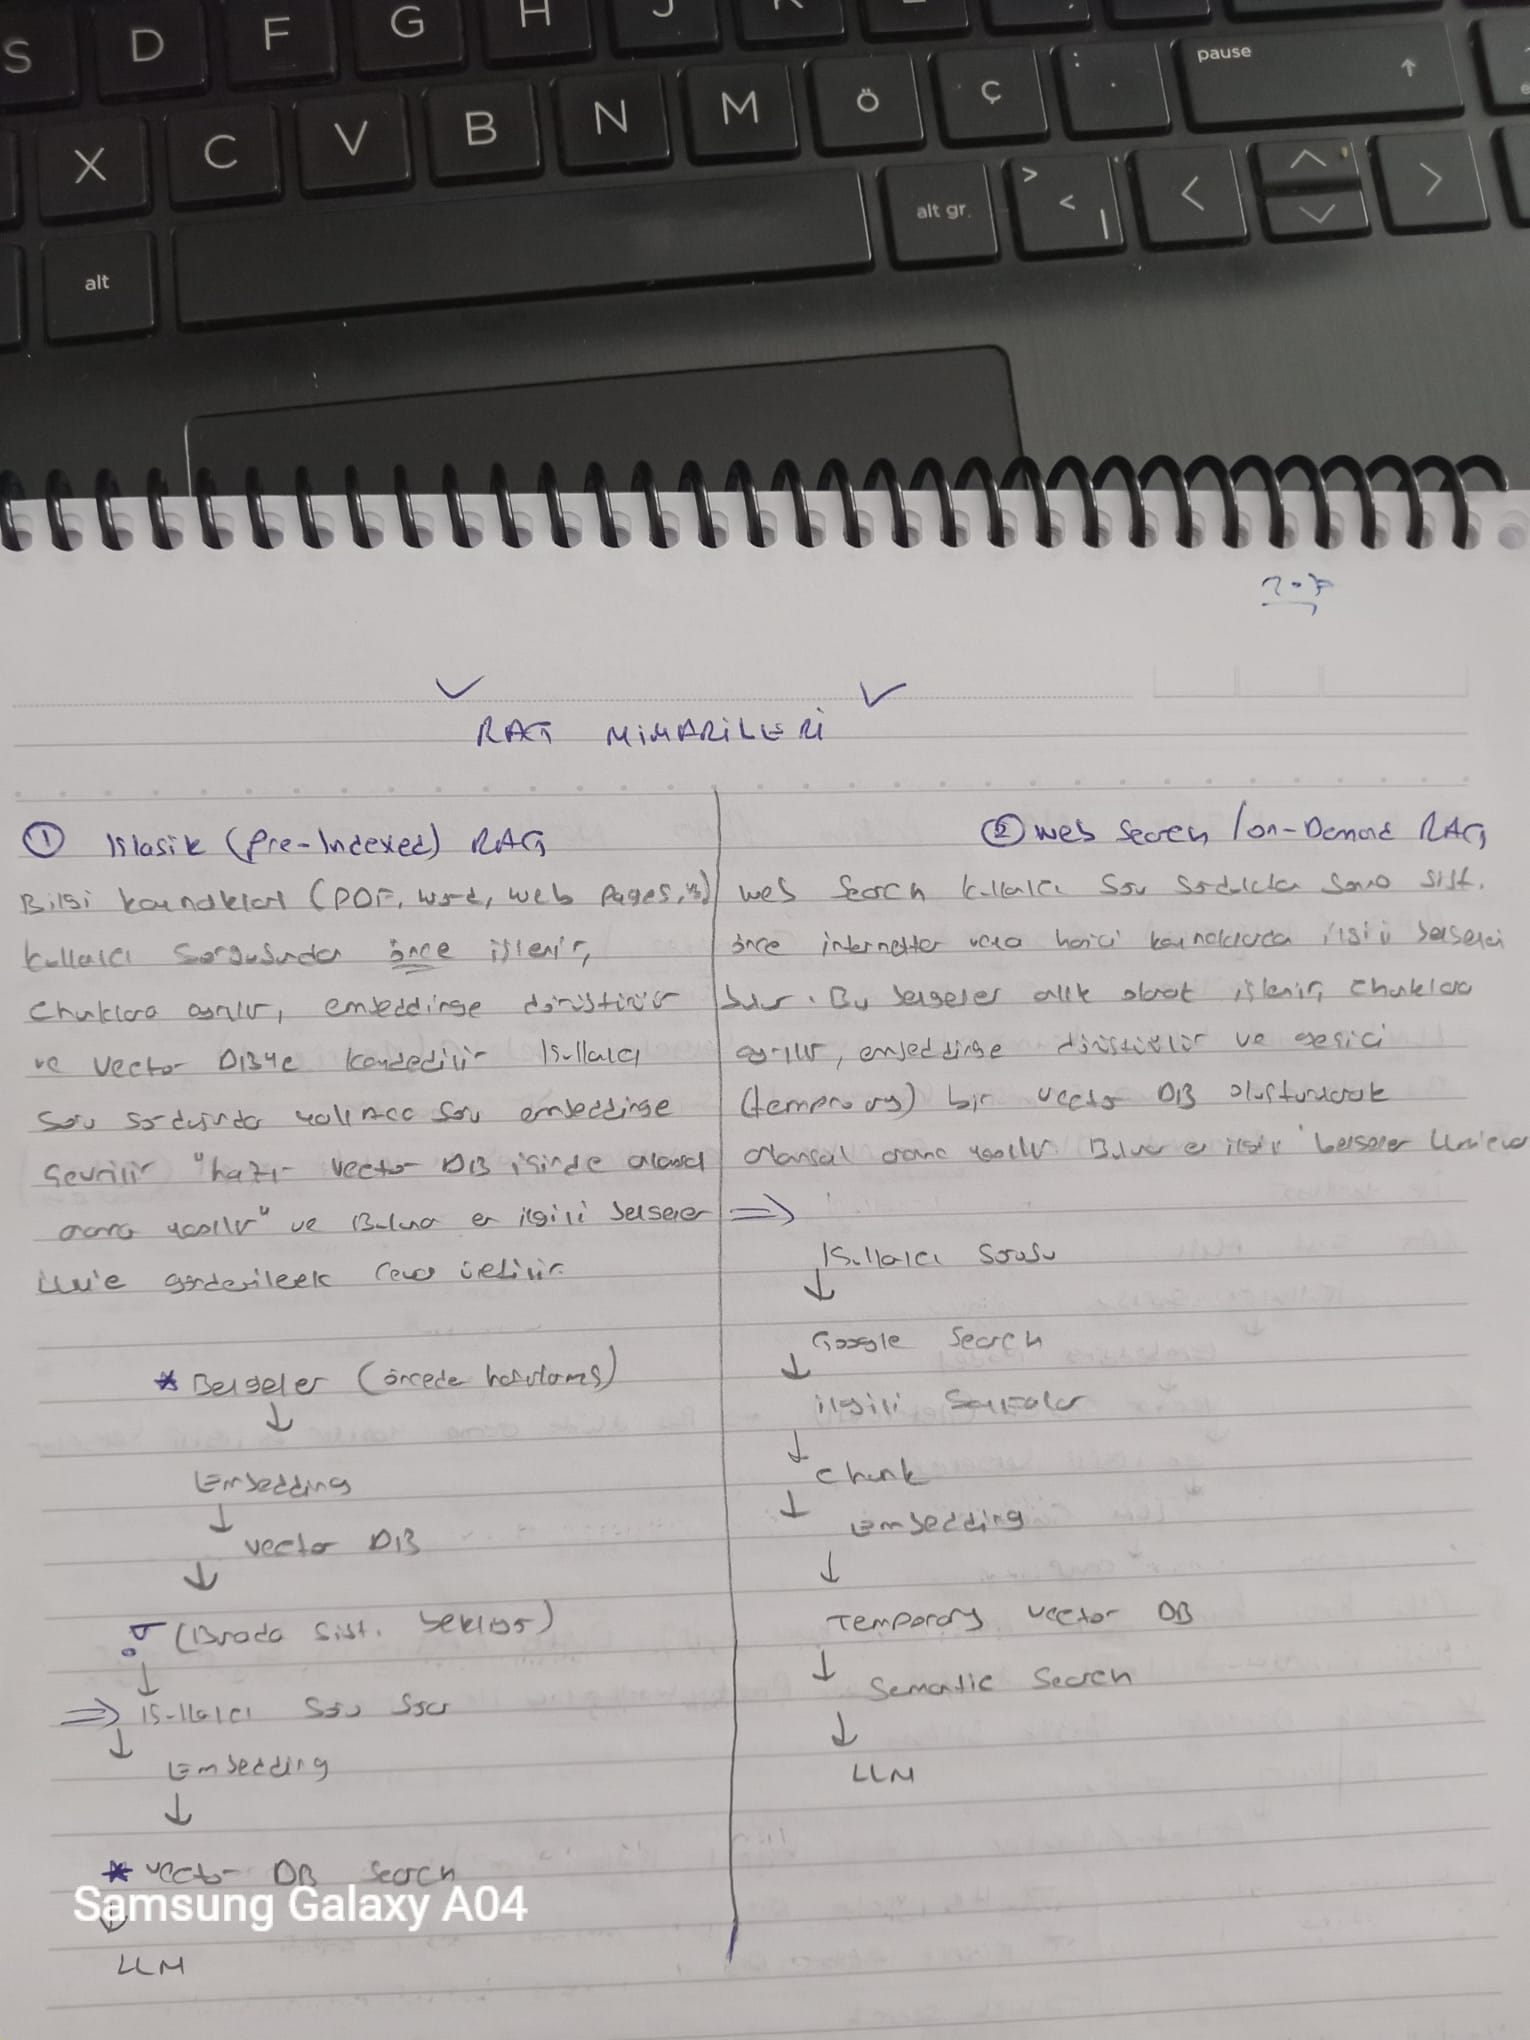 S D F G H J
X C V B N M Ö Ç : . pause
alt alt gr > < |
RAG MİMARİLERİ
① Klasik (Pre-Indexed) RAG
Bilgi kaynakları (PDF, word, web pages, vs)
kullanıcı sorgusundan önce işlenir,
chunklara ayrılır, embeddinge dönüştürülür
ve vector DB'ye kaydedilir Kullanıcı
soru sorduğunda yalnızca soru embeddinge
çevrilir "hazır vector DB içinde anlamsal
arama yapılır" ve Bulunan en ilgili belgeler
LLM'e gönderilerek cevap üretilir.
* Belgeler (önceden hazırlanmış)
↓
Embedding
↓
vector DB
↓
(Burada sist. bekliyor)
↓
⇒ Kullanıcı soru sorar
↓
Embedding
↓
* vector DB search
↓
LLM
② Web Search / on-Demand RAG
web search kullanıcı soru sorduktan sonra sist.
önce internetten veya harici kaynaklardan ilgili belgeleri
bulur. Bu belgeler anlık olarak işlenir, chunklara
ayrılır, embeddinge dönüştürülür ve geçici
(temporary) bir vector DB oluşturularak
anlamsal arama yapılır Bulunan en ilgili belgeler
⇒
Kullanıcı sorusu
↓
Google Search
↓
ilgili Sayfalar
↓
chunk
↓
Embedding
↓
Temporary vector DB
↓
Semantic Search
↓
LLM
Samsung Galaxy A04